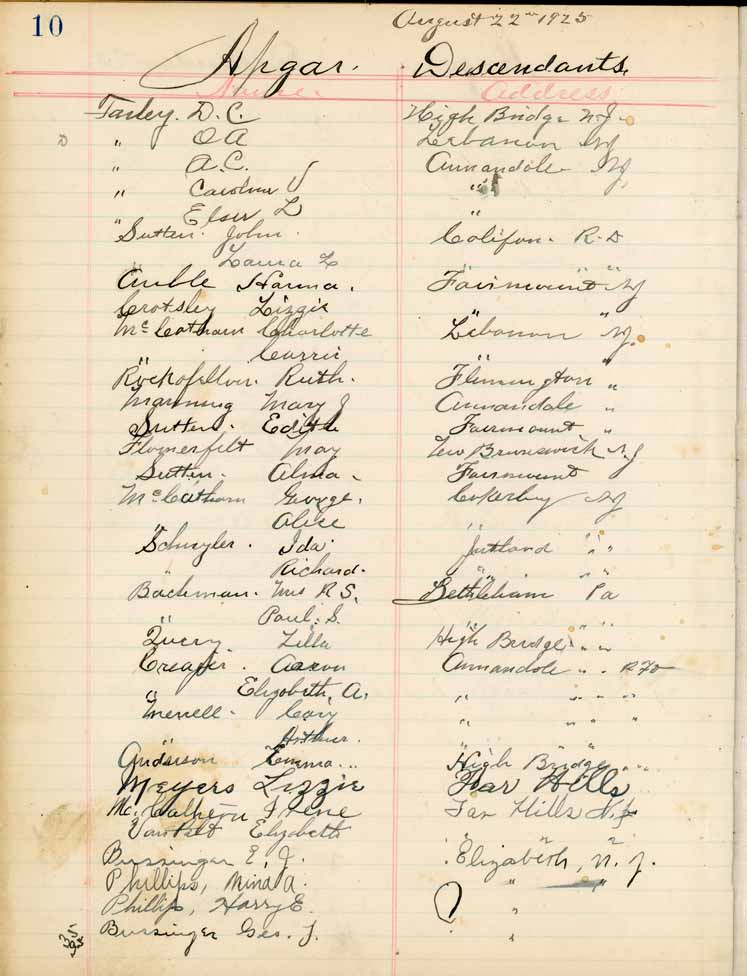 10
August 22nd 1925
Apgar. Descendants.
Name. Address
Farley. D. C. High Bridge N.J.
" O A Lebanon NJ
" A. C. Annandale NJ,
" Caroline "
" Elser L "
Sutten. John. Califon. R.D
" Laura " " "
Amble Hanna. Fairmount NJ
Crotsley Lizzie " "
Mc Cathern Charlotte Lebanon NJ.
" Carrie " "
Rockofellow. Ruth. Flemington "
Manning Mary J Annandale "
Sutten. Edith Fairmount "
Flomerfelt May New Brunswick NJ
Sutten. Alma. Fairmount
Mc Cathern George. Cokesbury NJ
" Alice "
Schuyler. Ida. Jutland " "
" Richard. " " "
Bachman. Mrs R S. Bethleham Pa
" Paul. S. " " "
Query. Zilla High Bridge " "
Creager. Aaron Annandale " . RFD
" Elizabeth. A. " " " "
Merrell. " " " "
" Arthur. "
Anderson Emma. High Bridge " "
Meyers Lizzie Far Hills
Irene Far Hills N.J.
Elizabeth " "
Bussinger E. J. Elizabeth, N. J.
Phillips, Mina A. " "
Phillips, Harry E. ? "
Bussinger Geo. J. "
35